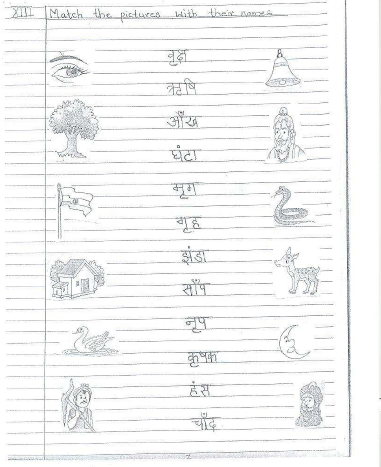 XIII Match the pictures with their names
वृक्ष
ऋषि
आँख
घंटा
मृग
गृह
झंडा
साँप
नृप
कृषक
हंस
चाँद
2